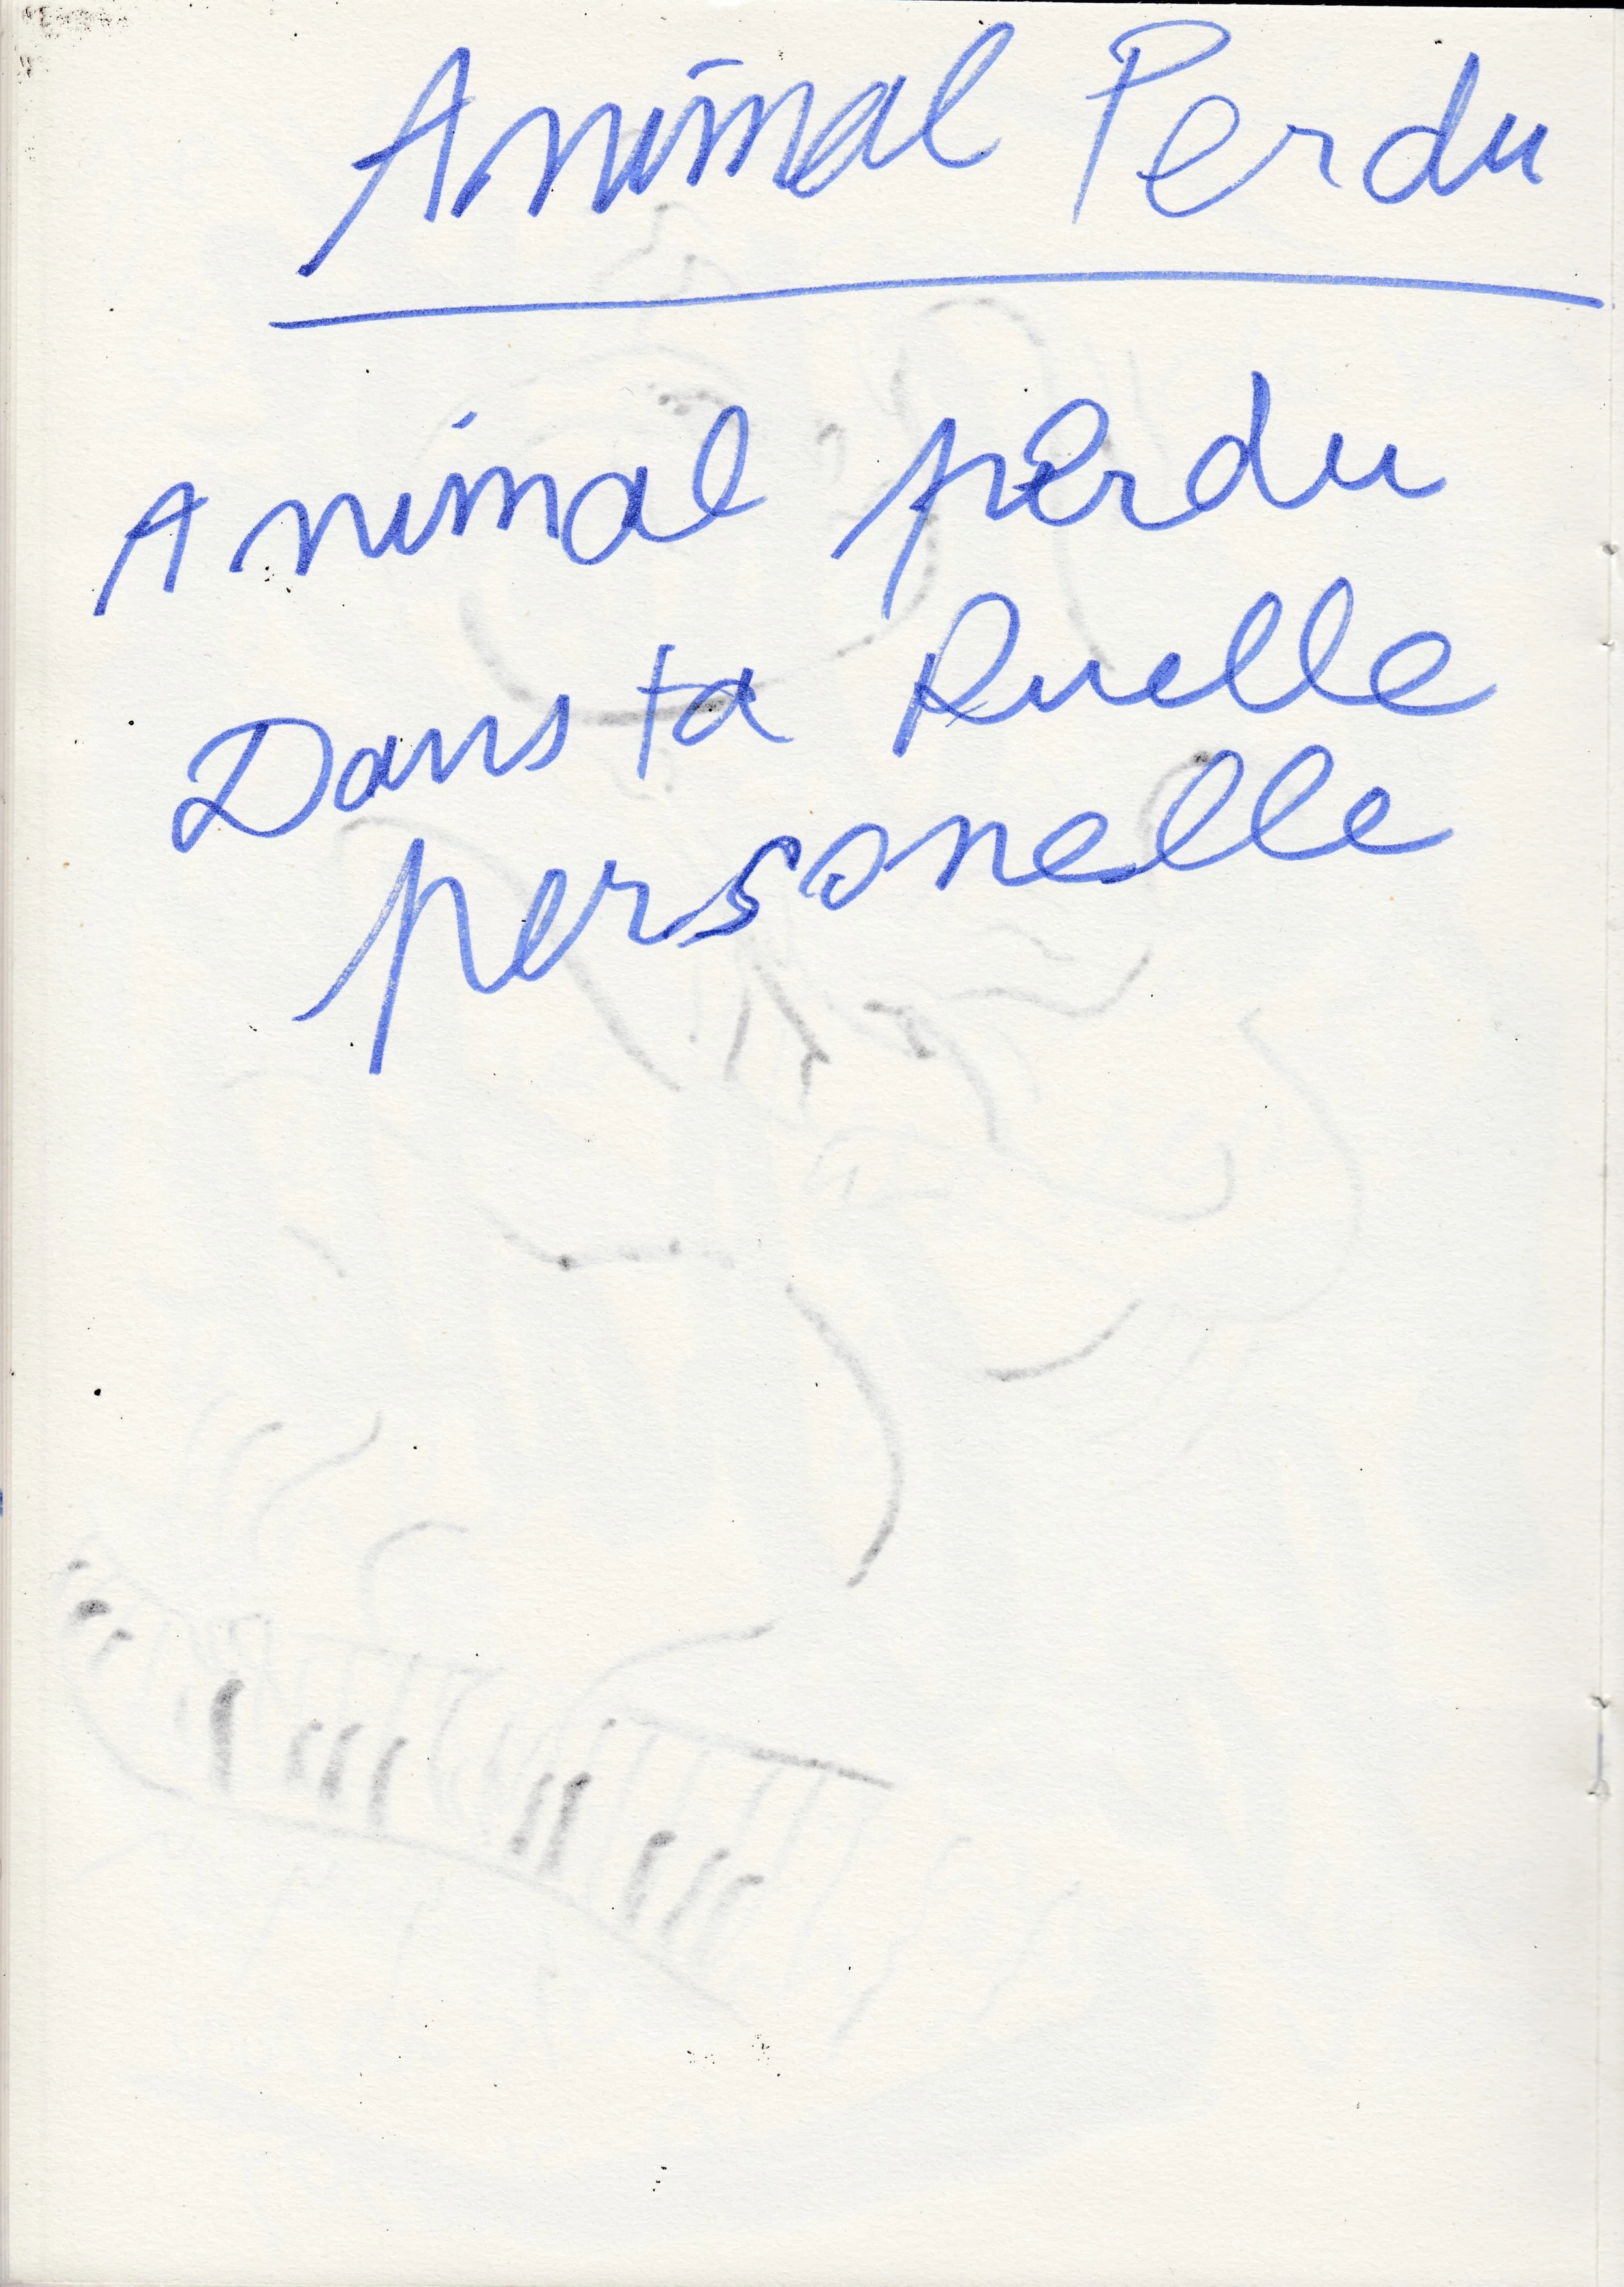 Animal Perdu
Animal perdu
Dans ta Ruelle
personelle